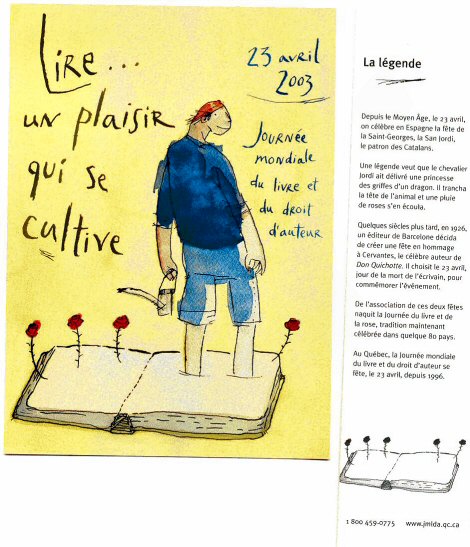 Lire...
un plaisir
qui se
cultive
23 avril
2003
Journée
mondiale
du livre et
du droit
d'auteur
La légende
Depuis le Moyen Âge, le 23 avril,
on célèbre en Espagne la fête de
la Saint-Georges, la San Jordi,
le patron des Catalans.
Une légende veut que le chevalier
Jordi ait délivré une princesse
des griffes d'un dragon. Il trancha
la tête de l'animal et une pluie
de roses s'en écoula.
Quelques siècles plus tard, en 1926,
un éditeur de Barcelone décida
de créer une fête en hommage
à Cervantes, le célèbre auteur de
Don Quichotte. Il choisit le 23 avril,
jour de la mort de l'écrivain, pour
commémorer l'événement.
De l'association de ces deux fêtes
naquit la Journée du livre et de
la rose, tradition maintenant
célébrée dans quelque 80 pays.
Au Québec, la Journée mondiale
du livre et du droit d'auteur se
fête, le 23 avril, depuis 1996.
1 800 459-0775 www.jmlda.qc.ca